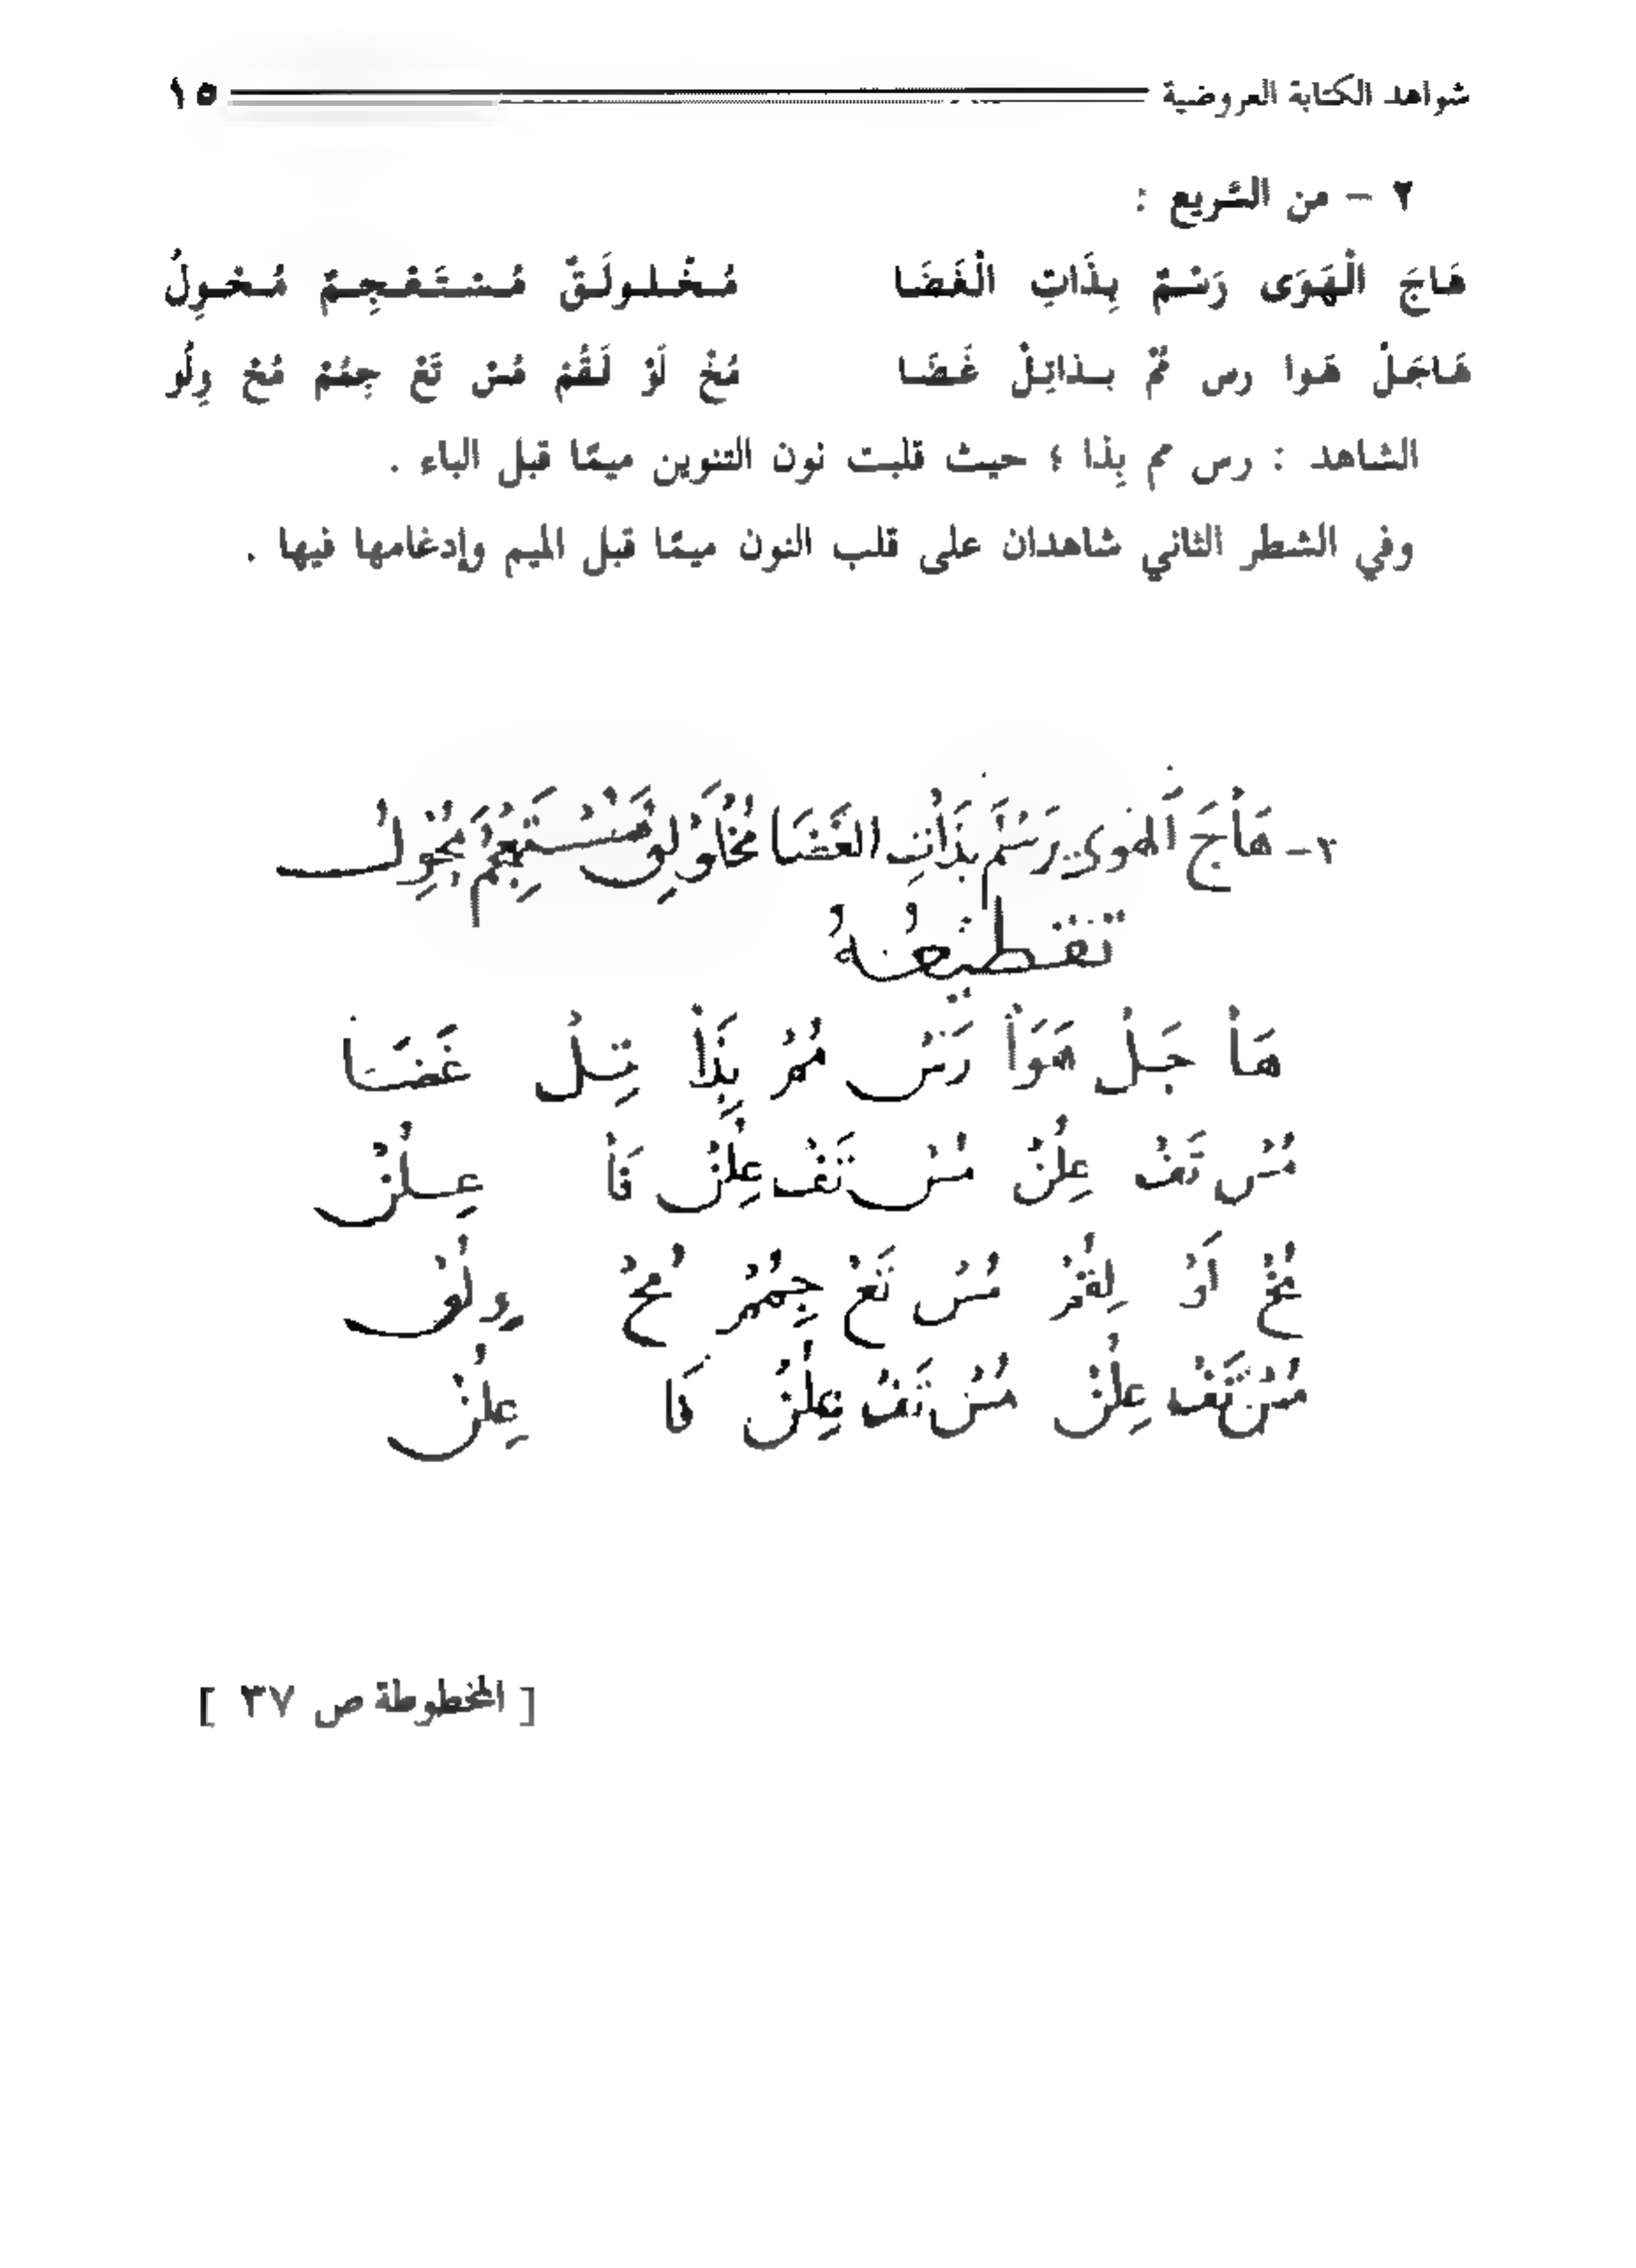 شواهد الكتابة العروضية ١٥
٢ – من السَّريع :
هَاجَ الْهَوَى رَسْمٌ بِذَاتِ الْغَضَا مُخْلولَقٌ مُسْتَعْجِمٌ مُحْوِلُ
هَاجَلْ هَوا رس مُمْ بذاتِلْ غَضَا مُخْ لَوْ لَقُمْ مُسْ تَعْ جِمُمْ مُحْ وِلُو
الشاهد : رس مم بِذا ؛ حيث قلبت نون التنوين ميمًا قبل الباء .
وفي الشطر الثاني شاهدان على قلب النون ميمًا قبل الميم وإدغامها فيها .
٢- هَاْجَ اَلْهَوى رَسْمٌ بِذَاْتِ الغَضَا مُخْلَوْلِقٌ مُسْتَعْجِمٌ مُحْوِلُ
تَقْطِيْعُهُ
هَاْ جَلْ هَوَاْ رَسْ مُمْ بِذَاْ تِلْ غَضَاْ
مُسْ تَفْ عِلُنْ مُسْ تَفْ عِلُنْ فَاْ عِلُنْ
مُخْ لَوْ لِقُمْ مُسْ تَعْ جِمُمْ مُحْ وِلُوْ
مُسْ تَفْ عِلُنْ مُسْ تَفْ عِلُنْ فَا عِلُنْ
[ المخطوطة ص ٣٧ ]